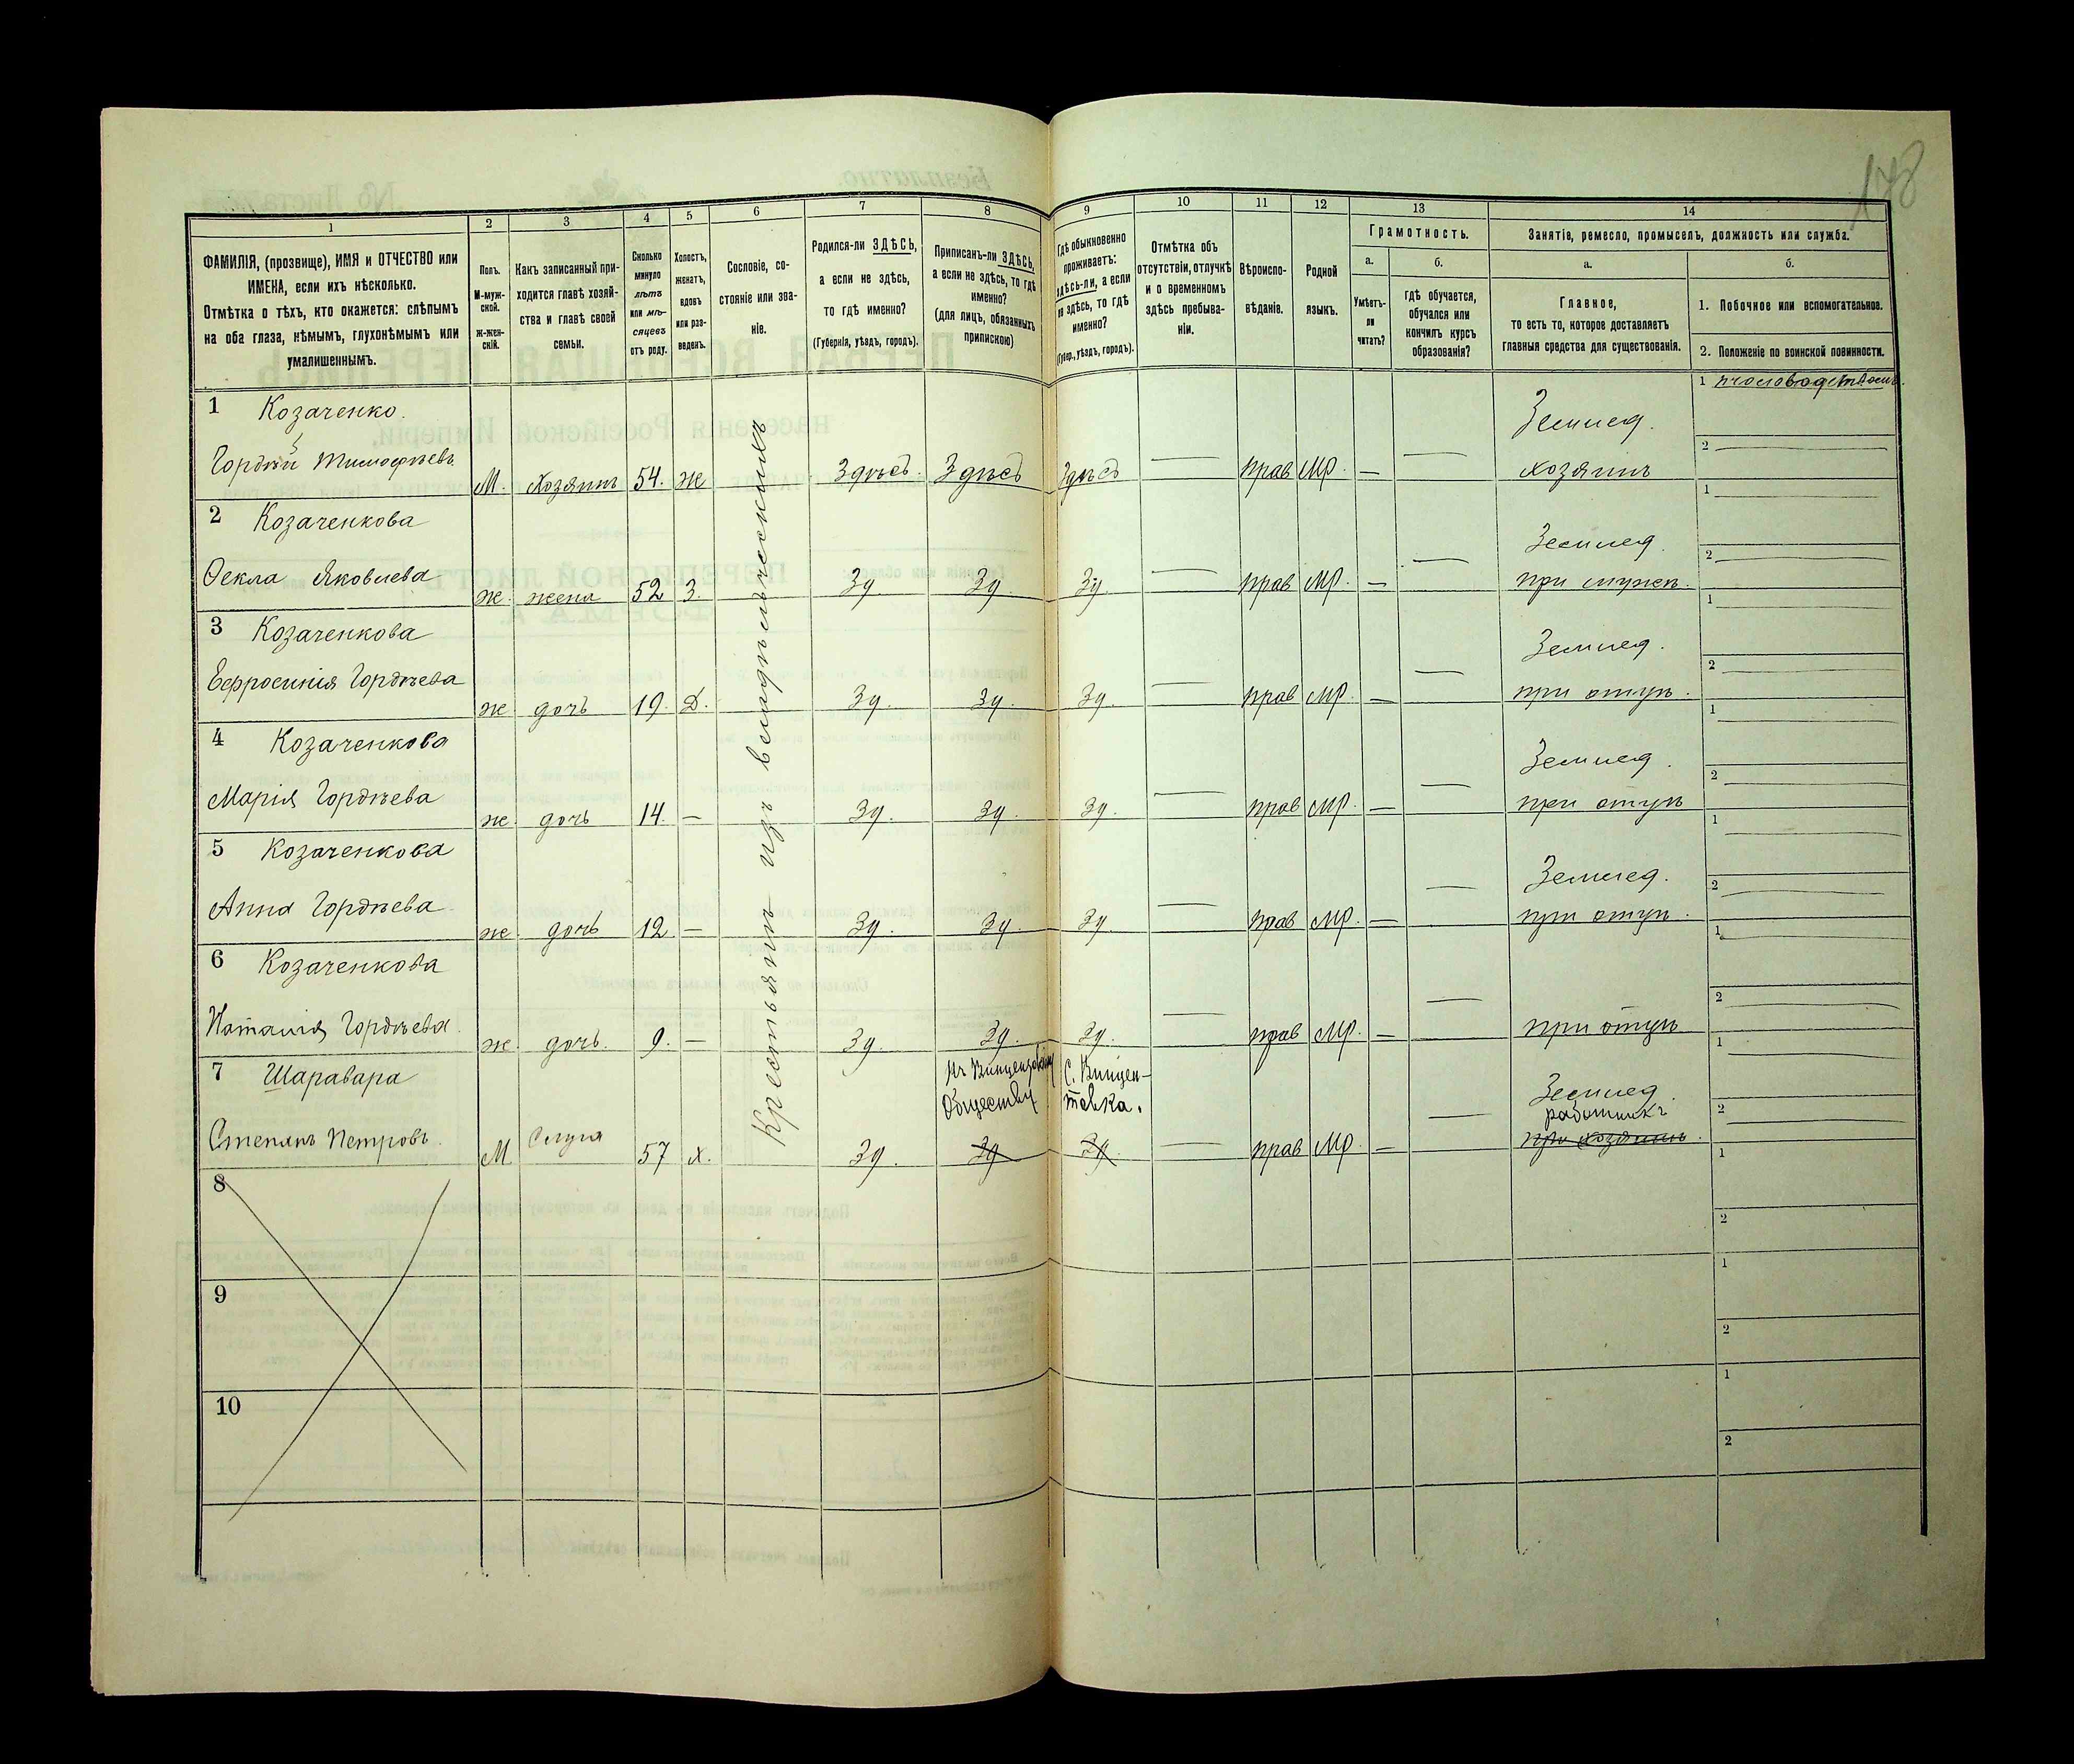 178
1 2 3 4 5 6 7 8 9 10 11 12 13 14
ФАМИЛІЯ, (прозвище), ИМЯ и ОТЧЕСТВО или
ИМЕНА, если ихъ нѣсколько.
Отмѣтка о тѣхъ, кто окажется: слѣпымъ
на оба глаза, нѣмымъ, глухонѣмымъ или
умалишеннымъ.
Полъ.
М-муж-
ской.
Ж-жен-
скій.
Какъ записанный при-
ходится главѣ хозяй-
ства и главѣ своей
семьи.
Сколько
минуло
лѣтъ
или мѣ-
сяцевъ
отъ роду.
Холостъ,
женатъ,
вдовъ
или раз-
веденъ.
Сословіе, со-
стояніе или зва-
ніе.
Родился-ли ЗДѢСЬ,
а если не здѣсь,
то гдѣ именно?
(Губернія, уѣздъ, городъ).
Приписанъ-ли ЗДѢСЬ,
а если не здѣсь, то гдѣ
именно?
(для лицъ, обязанныхъ
припискою)
Гдѣ обыкновенно
проживаетъ:
здѣсь-ли, а если
не здѣсь, то гдѣ
именно?
(Губер., уѣздъ, городъ).
Отмѣтка объ
отсутствіи, отлучкѣ
и о временномъ
здѣсь пребыва-
ніи.
Вѣроиспо-
вѣданіе.
Родной
языкъ.
Грамотность.
а.
Умѣетъ-
ли
читать?
б.
гдѣ обучается,
обучался или
кончилъ курсъ
образованія?
Занятіе, ремесло, промыселъ, должность или служба.
а.
Главное,
то есть то, которое доставляетъ
главныя средства для существованія.
б.
1. Побочное или вспомогательное.
2. Положеніе по воинской повинности.
Крестьянъ изъ владѣльческихъ
1 Козаченко. Землед. 1 пчоловодствомъ.
Гордѣй Тимофѣевъ М. Хозяинъ 54. ж Здѣсь. Здѣсь Здѣсь — прав мр. — — хозяинъ 2 —
2 Козаченкова Землед. 1 —
Ѳекла Яковлева ж. жена 52 З. Зд Зд. Зд. — прав мр. — — при мужѣ. 2 —
3 Козаченкова Землед. 1 —
Евфросинія Гордѣева ж дочь 19. Д. Зд. Зд. Зд. — прав мр. — — при отцѣ. 2 —
4 Козаченкова Землед. 1 —
Марія Гордѣева ж. дочь 14. — Зд. Зд. Зд. — прав мр. — — при отцѣ 2 —
5 Козаченкова Землед. 1 —
Анна Гордѣева ж. дочь 12. — Зд. Зд. Зд. — прав мр. — — при отцѣ. 2 —
6 Козаченкова 1 —
Наталія Гордѣева. ж. дочь. 9. — Зд. Зд. Зд. — прав мр. — — при отцѣ 2 —
7 Шаравара Къ Винцентовскому С. Винцен- Землед. 1 —
Обществу товка. работникъ
Степанъ Петровъ. М Слуга 57 х. Зд. Зд Зд — прав мр. — — при хозяинѣ. 2 —
8 1
2
9 1
2
10 1
2